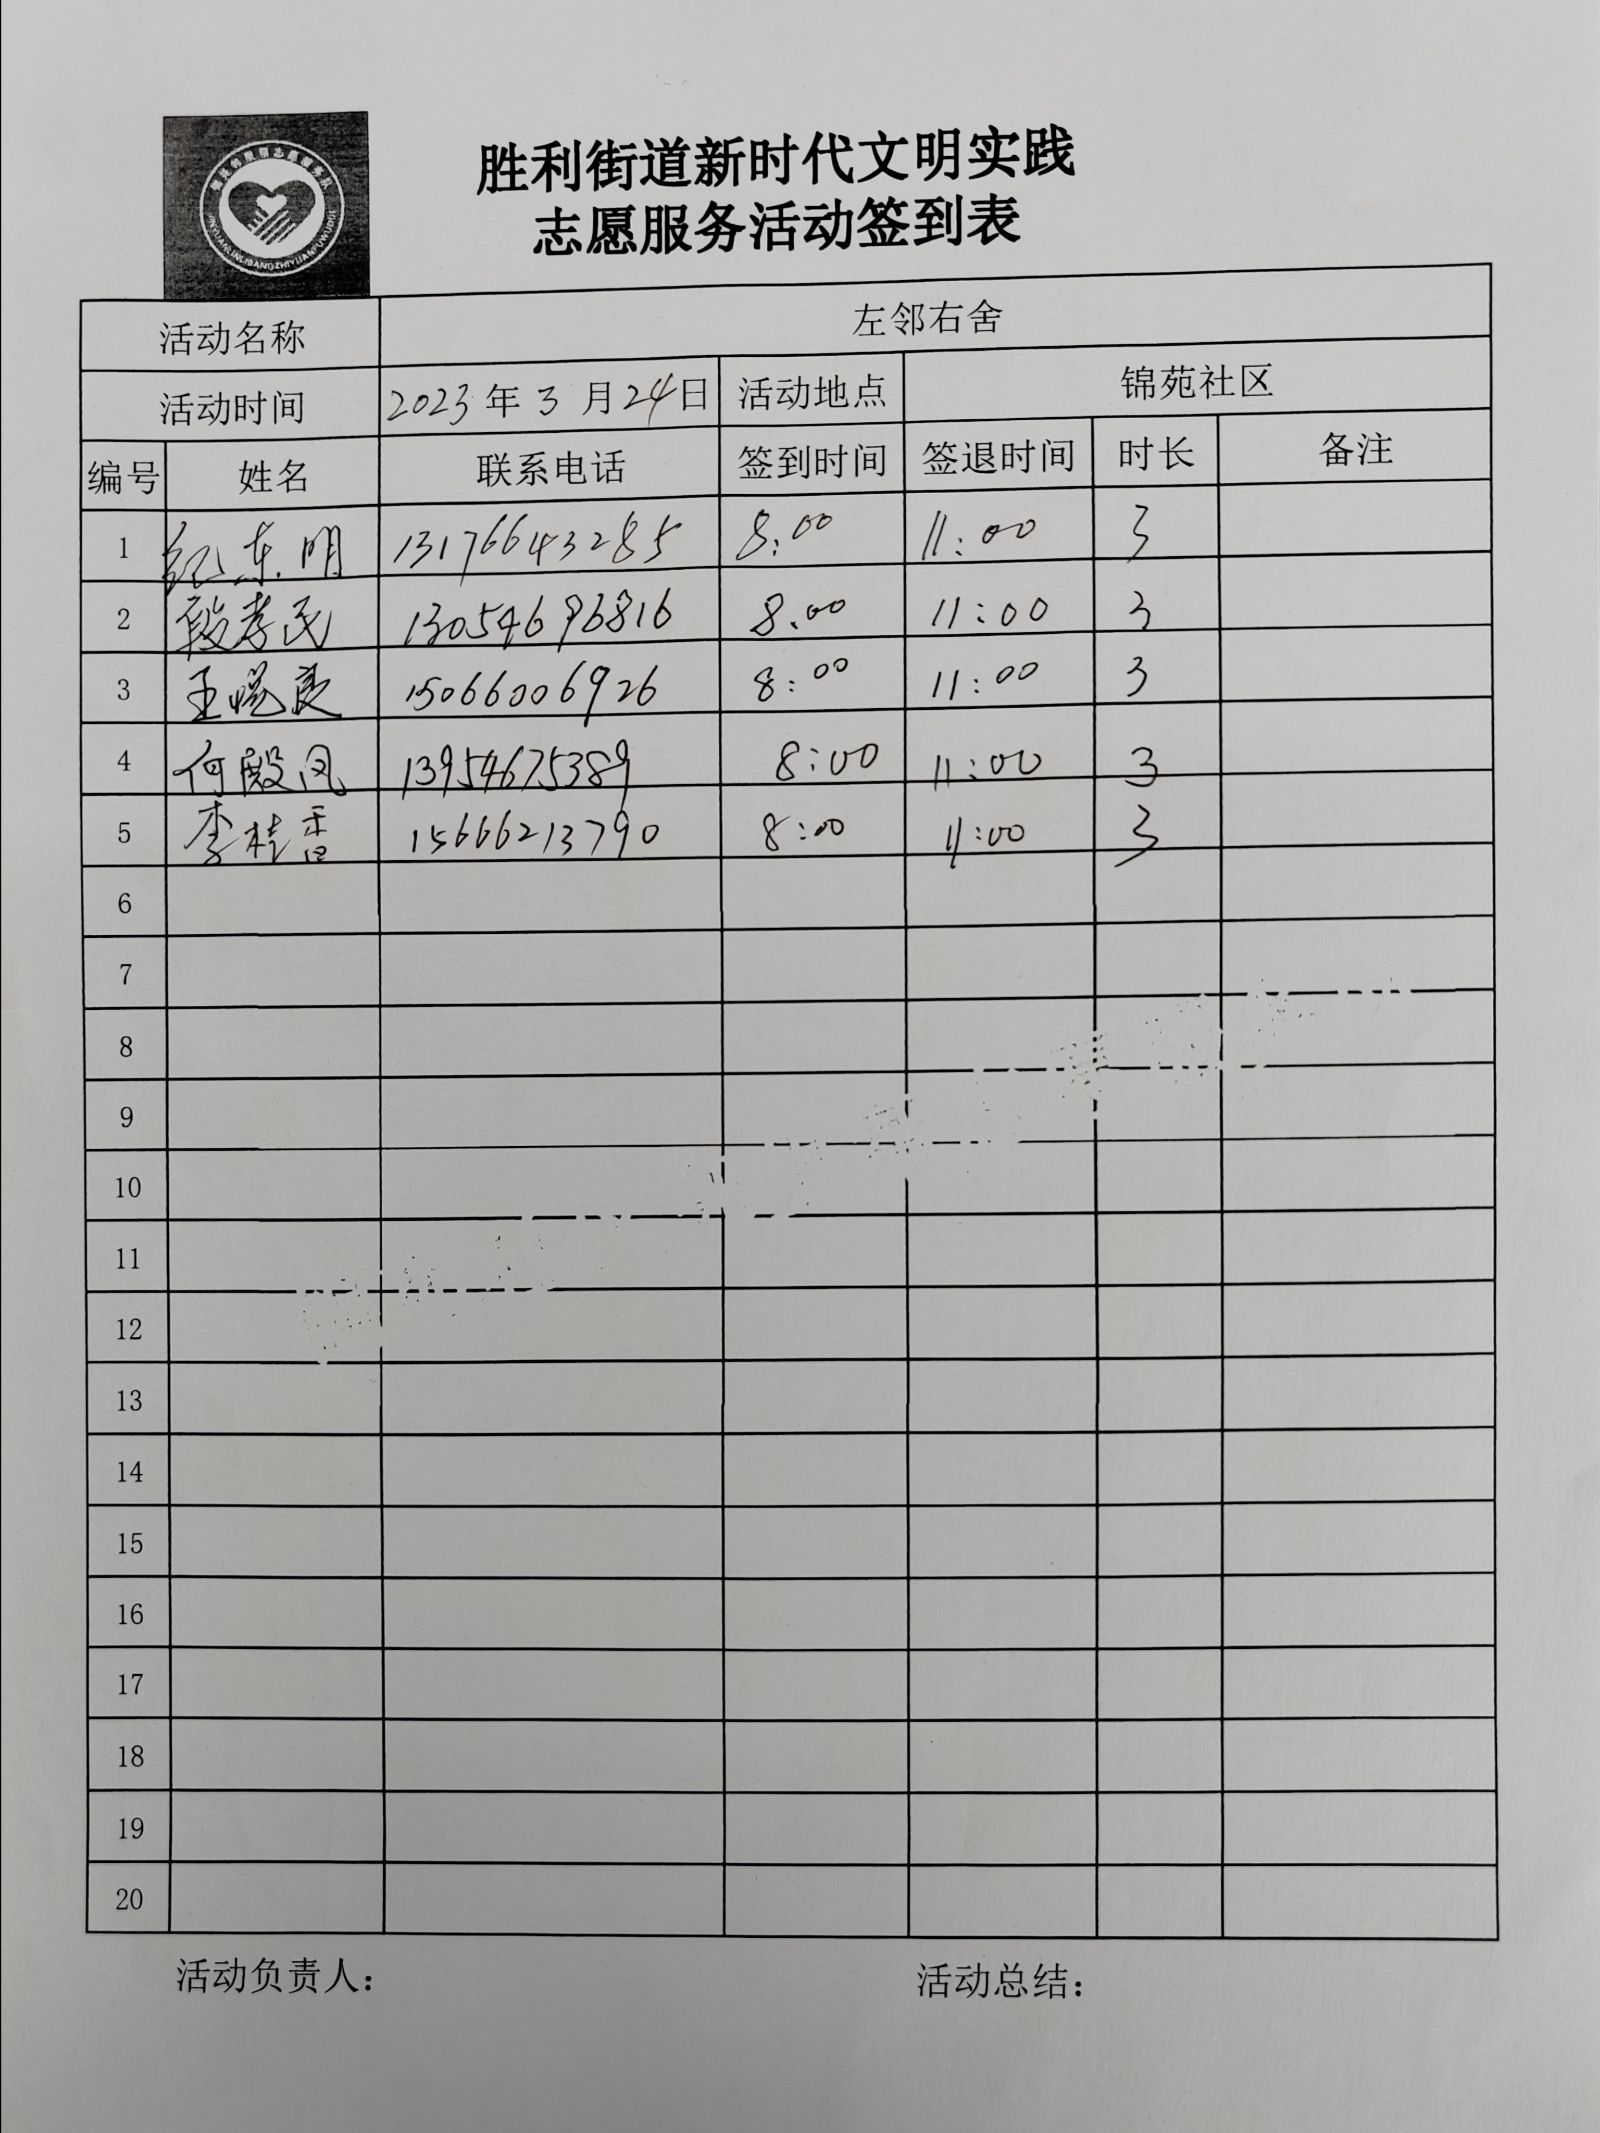 胜利街道新时代文明实践
志愿服务活动签到表
活动名称 左邻右舍
活动时间 2023年3月24日 活动地点 锦苑社区
编号 姓名 联系电话 签到时间 签退时间 时长 备注
1 纪东明 13176643285 8:00 11:00 3
2 段孝民 13054696816 8:00 11:00 3
3 王 15066006926 8:00 11:00 3
4 何殿凤 13954675389 8:00 11:00 3
5 李桂香 15666213790 8:00 11:00 3
6
7
8
9
10
11
12
13
14
15
16
17
18
19
20
活动负责人: 活动总结: